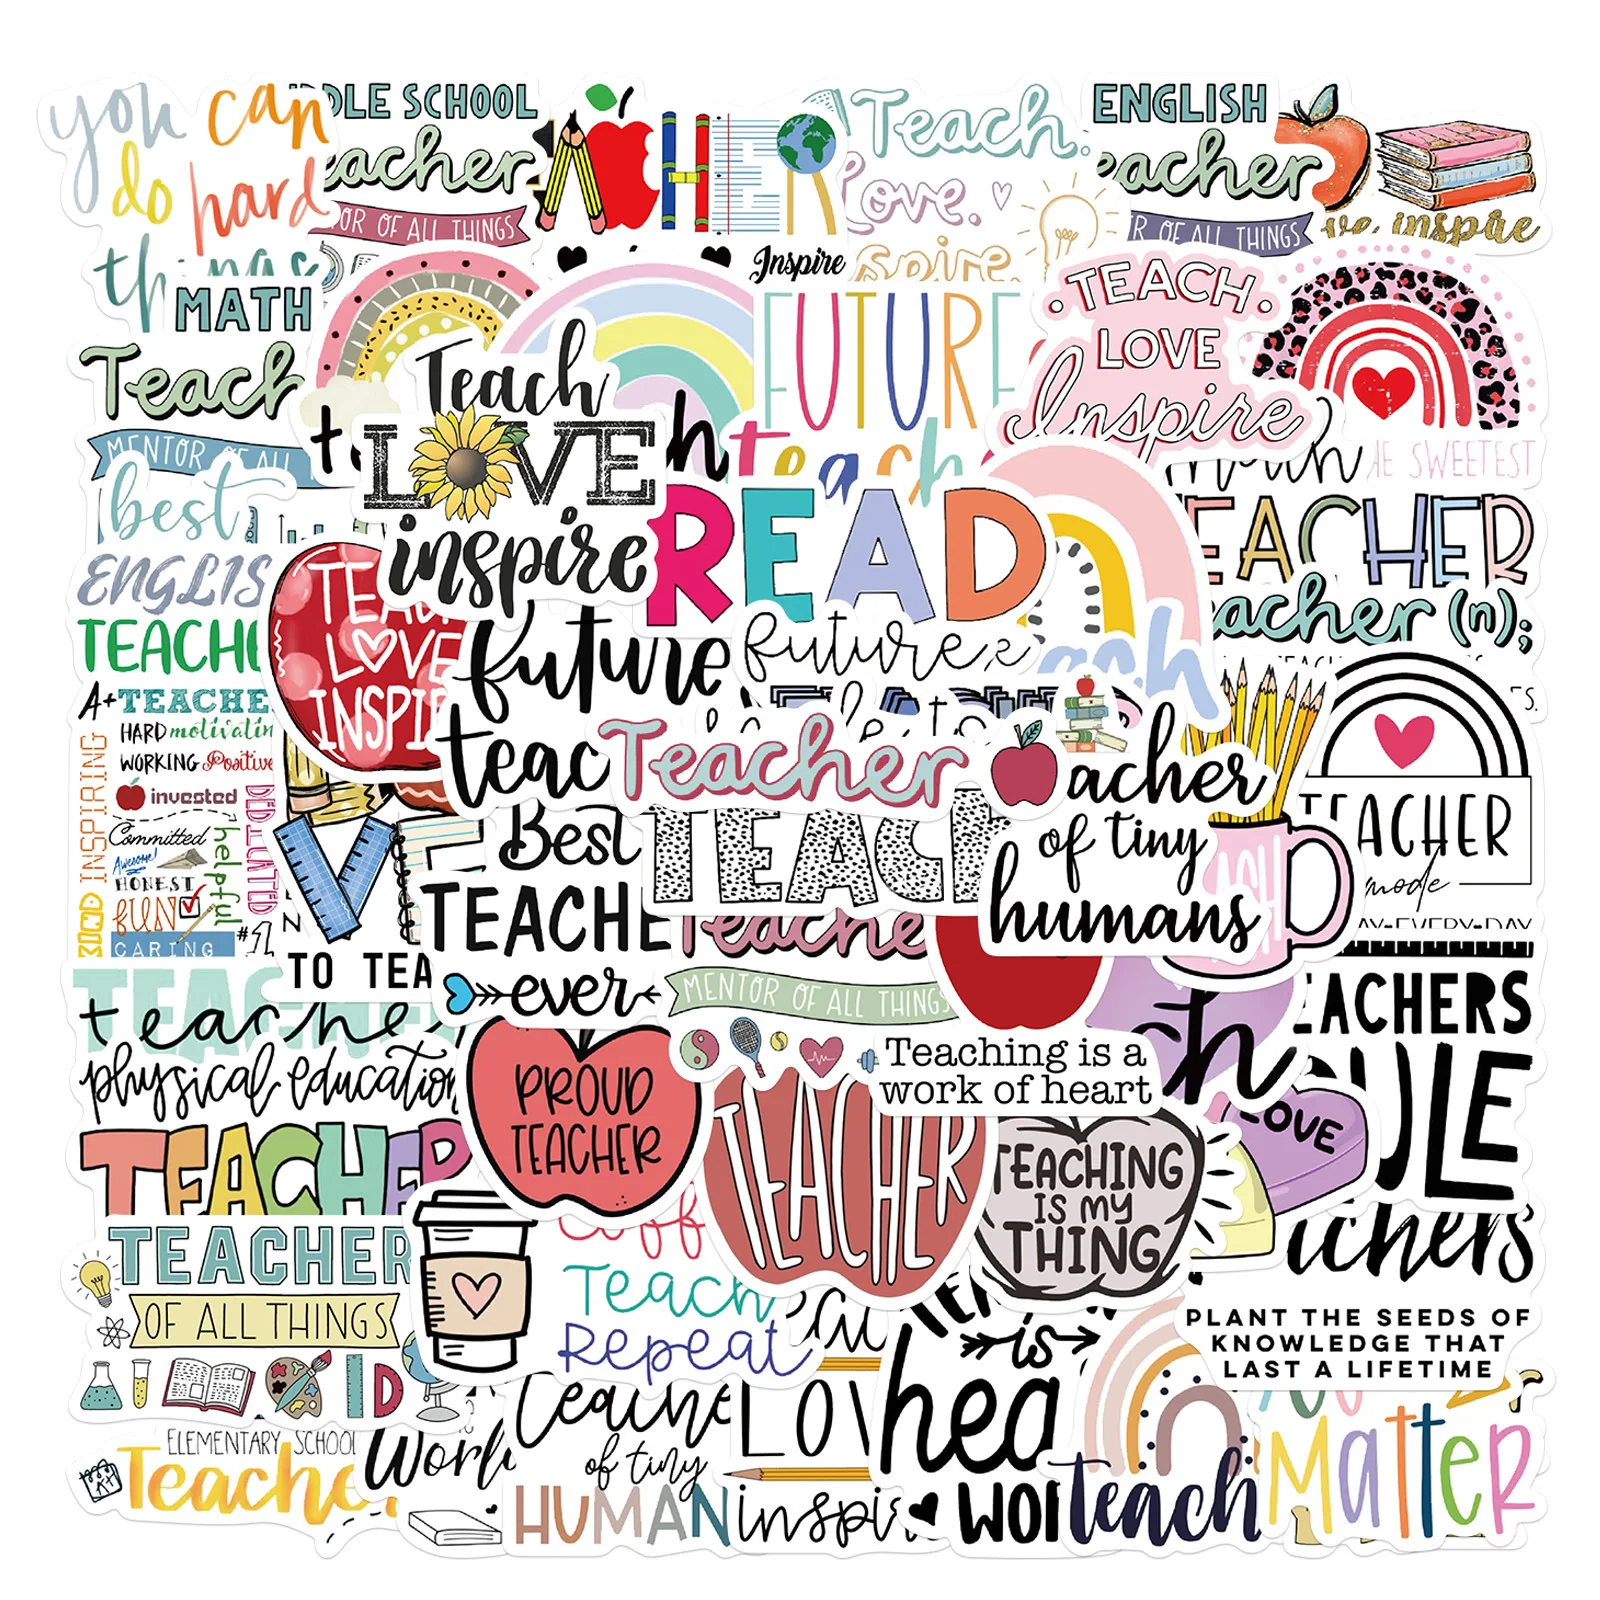 you can
do hard
things
DDLE SCHOOL
eacher
OR OF ALL THINGS
ACHER
Inspire
Teach.
Love.
spire
ENGLISH
eacher
R OF ALL THINGS
ve. inspire
MATH
Teach
MENTOR OF ALL
Teach
LOVE
inspire
FUTURE
teach
TEACH
LOVE
Inspire
HE SWEETEST
TEACHER
eacher (n);
best
ENGLIS
TEACHE
A+ TEACHE
HARD motivatin
WORKING Positive
invested
INSPIRING
KIND
Committed
Awesome!
HONEST
FUN
CARING
helpful
DEDICATED
#1
TEAC
LOVE
INSPI
READ
future
teac
future
Teacher
ach
TEACHER
mode
AY•EVERY•DAY
acher
of tiny
humans
Best
TEACHE
ever
TEACH
VE
TO TEA
Teache
MENTOR OF ALL THINGS
TEACHER
teacher
physical education
TEACHER
PROUD
TEACHER
TEACHER
Teaching is a
work of heart
TEACHING
IS MY
THING
ch
LOVE
EACHERS
ULE
achers
PLANT THE SEEDS OF
KNOWLEDGE THAT
LAST A LIFETIME
TEACHER
OF ALL THINGS
ELEMENTARY SCHOOL
Teache
A+
Worl
Coff
Teach
Repeat
teache
of tiny
HUMAN
LOV
inspir
is
hea
WOR
teach
Matter